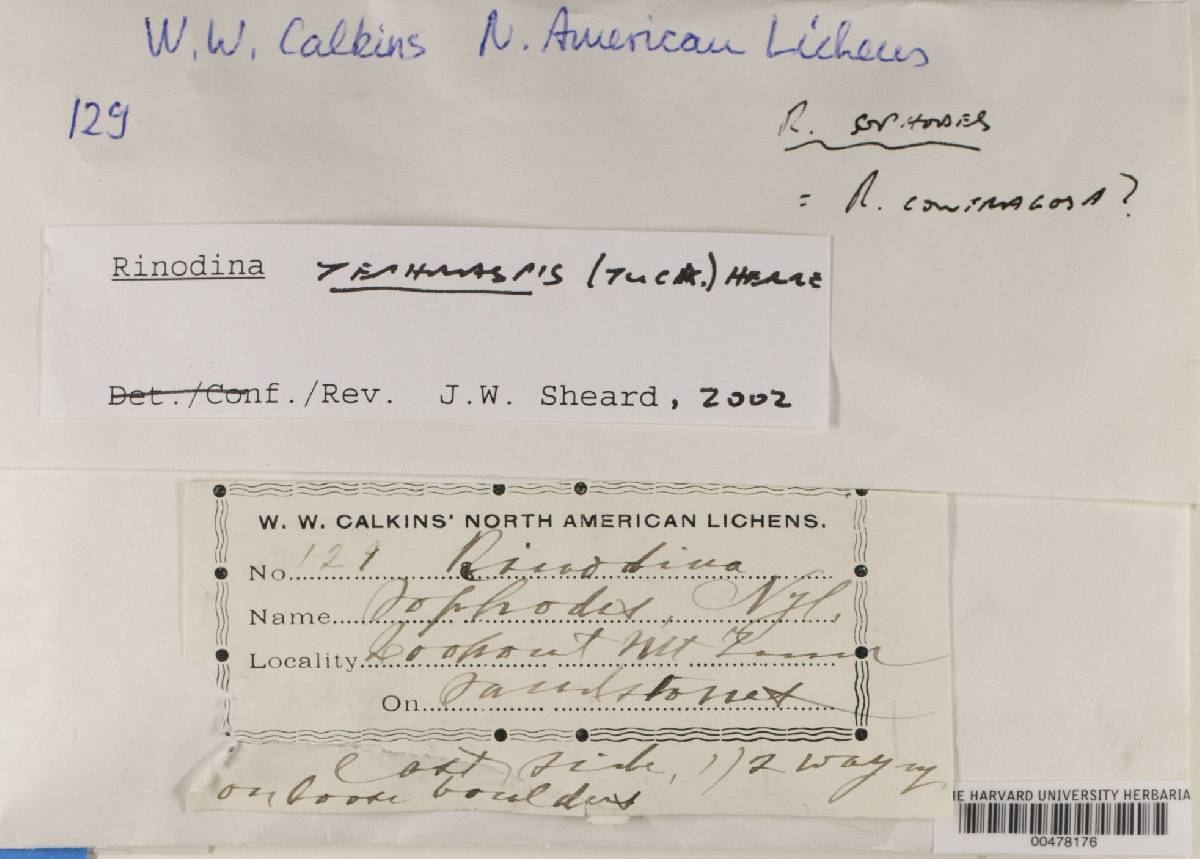 W.W. Calkins N. American Lichens
129
R. sophodes
= R. confragosa?
Rinodina TEPHRASPIS (TUCK.) HERRE
Det./Conf./Rev. J.W. Sheard, 2002
W. W. CALKINS' NORTH AMERICAN LICHENS.
No. 129 Rinodina
Name Sophodes, Nyl.
Locality Lookout Mt Tenn
On Sandstones
East side, 1/2 way up
on loose boulders
THE HARVARD UNIVERSITY HERBARIA
00478176